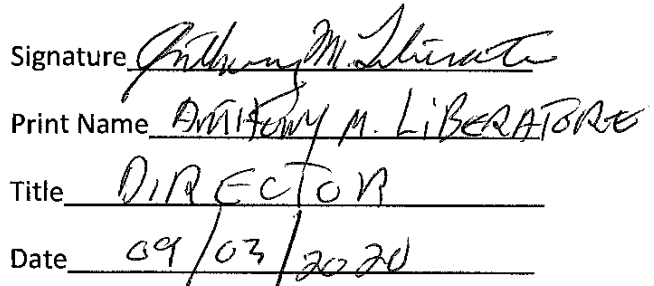 Signature Anthony M. Liberatore
Print Name ANTHONY M. LiBERATORE
Title DIRECTOR
Date 09/03/2020